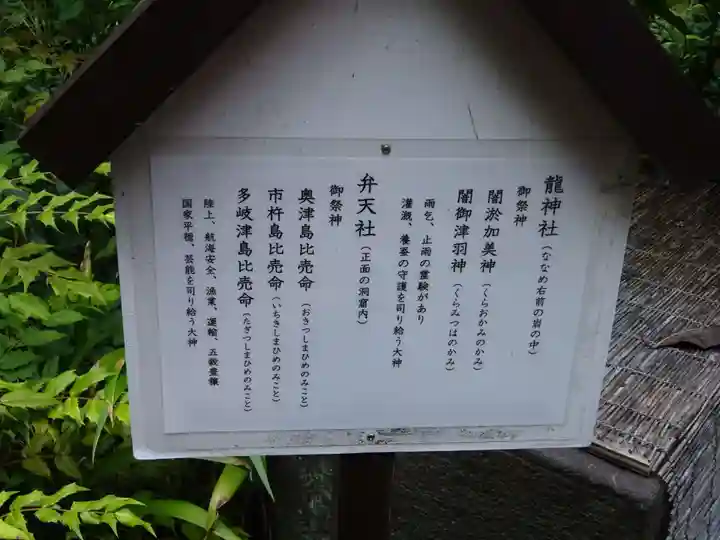 龍神社（ななめ右前の岩の中）
御祭神
闇淤加美神（くらおかみのかみ）
闇御津羽神（くらみつはのかみ）
雨乞、止雨の霊験があり
灌漑、養蚕の守護を司り給う大神
弁天社（正面の洞窟内）
御祭神
奥津島比売命（おきつしまひめのみこと）
市杵島比売命（いちきしまひめのみこと）
多岐津島比売命（たぎつしまひめのみこと）
陸上、航海安全、漁業、運輸、五穀豊穣
国家平穏、芸能を司り給う大神